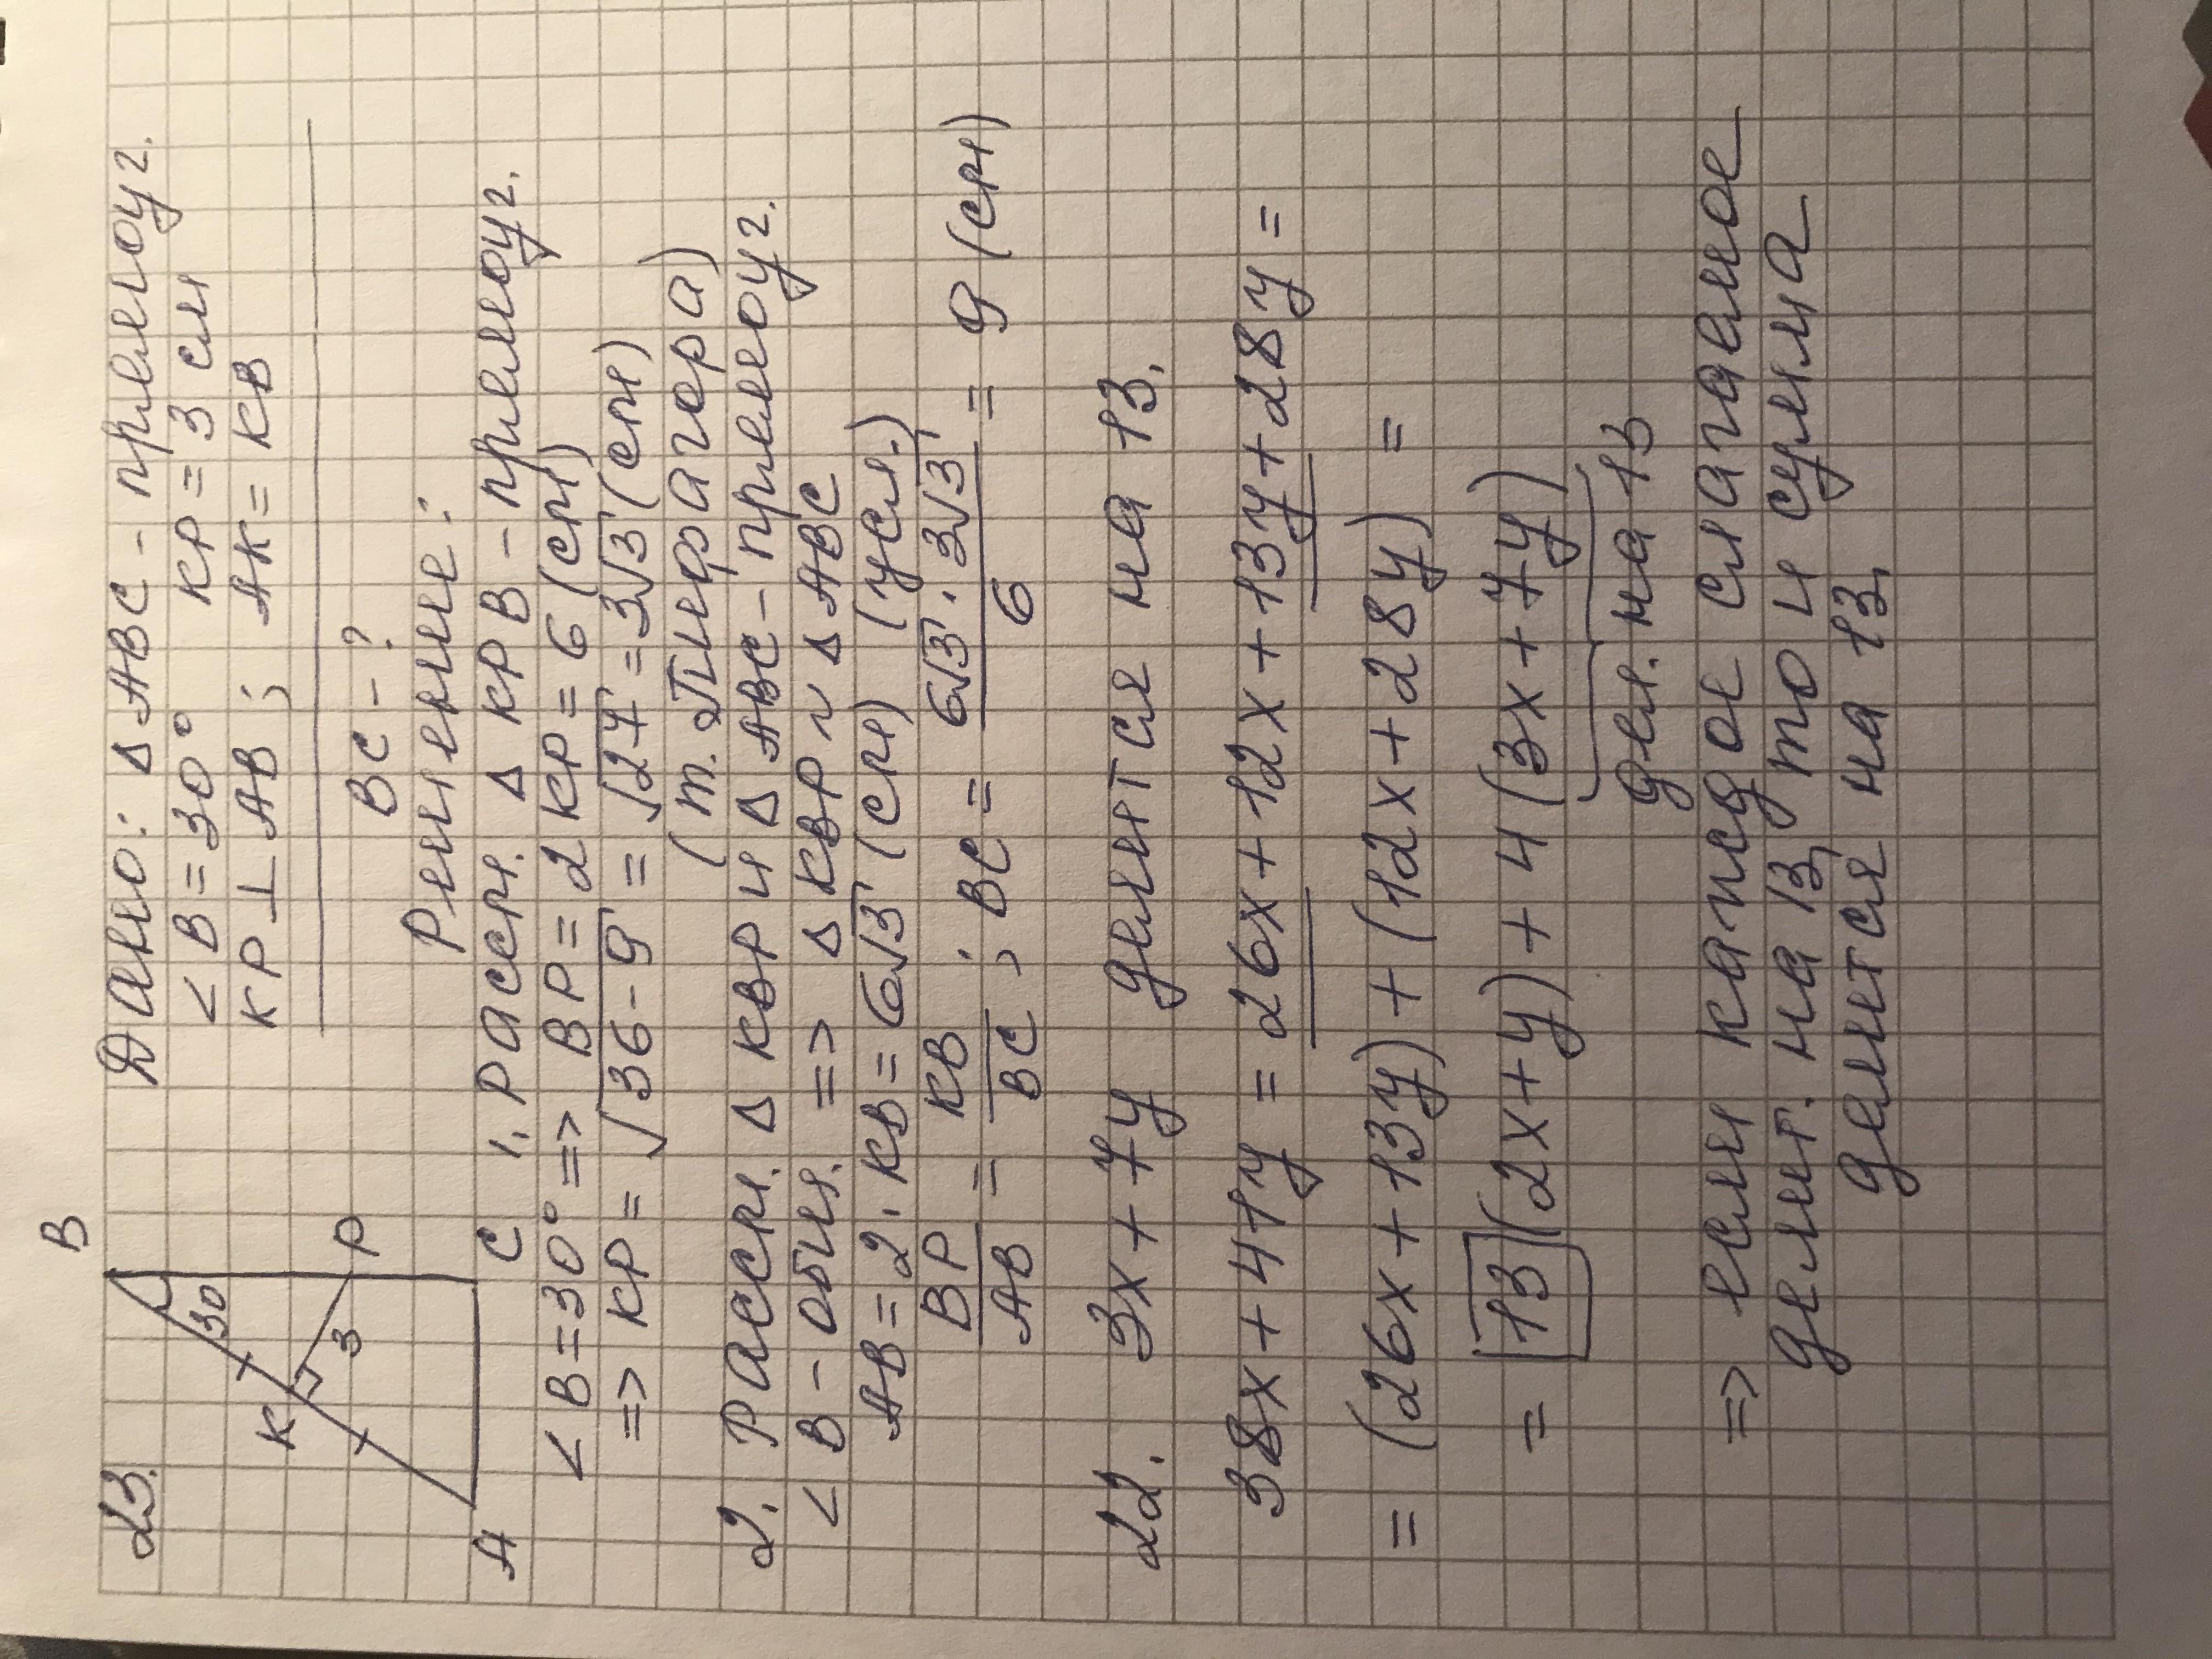 23.
B
30
K
3
P
A
C
Дано: Δ ABC - прямоуг.
< B = 30° KP = 3 см
KP ⊥ AB ; AK = KB
BC - ?
Решение:
1. Рассм. Δ KPB - прямоуг.
< B = 30° => BP = 2 KP = 6 (см)
=> KP = √36 - 9 = √27 = 3√3 (см)
(т. Пифагора)
2. Рассм. Δ KBP и Δ ABC - прямоуг.
< B - общ. => Δ KBP ~ Δ ABC
AB = 2 . KB = 6√3 (см) (усл.)
BP/AB = KB/BC ; BC = 6√3 . 3√3/6 = 9 (см)
22. 3x + 7y делится на 13.
38x + 41y = 26x + 12x + 13y + 28y =
= (26x + 13y) + (12x + 28y) =
= 13 (2x + y) + 4 (3x + 7y)
дел. на 13
=> если каждое слагаемое
делит. на 13, то и сумма
делится на 13.